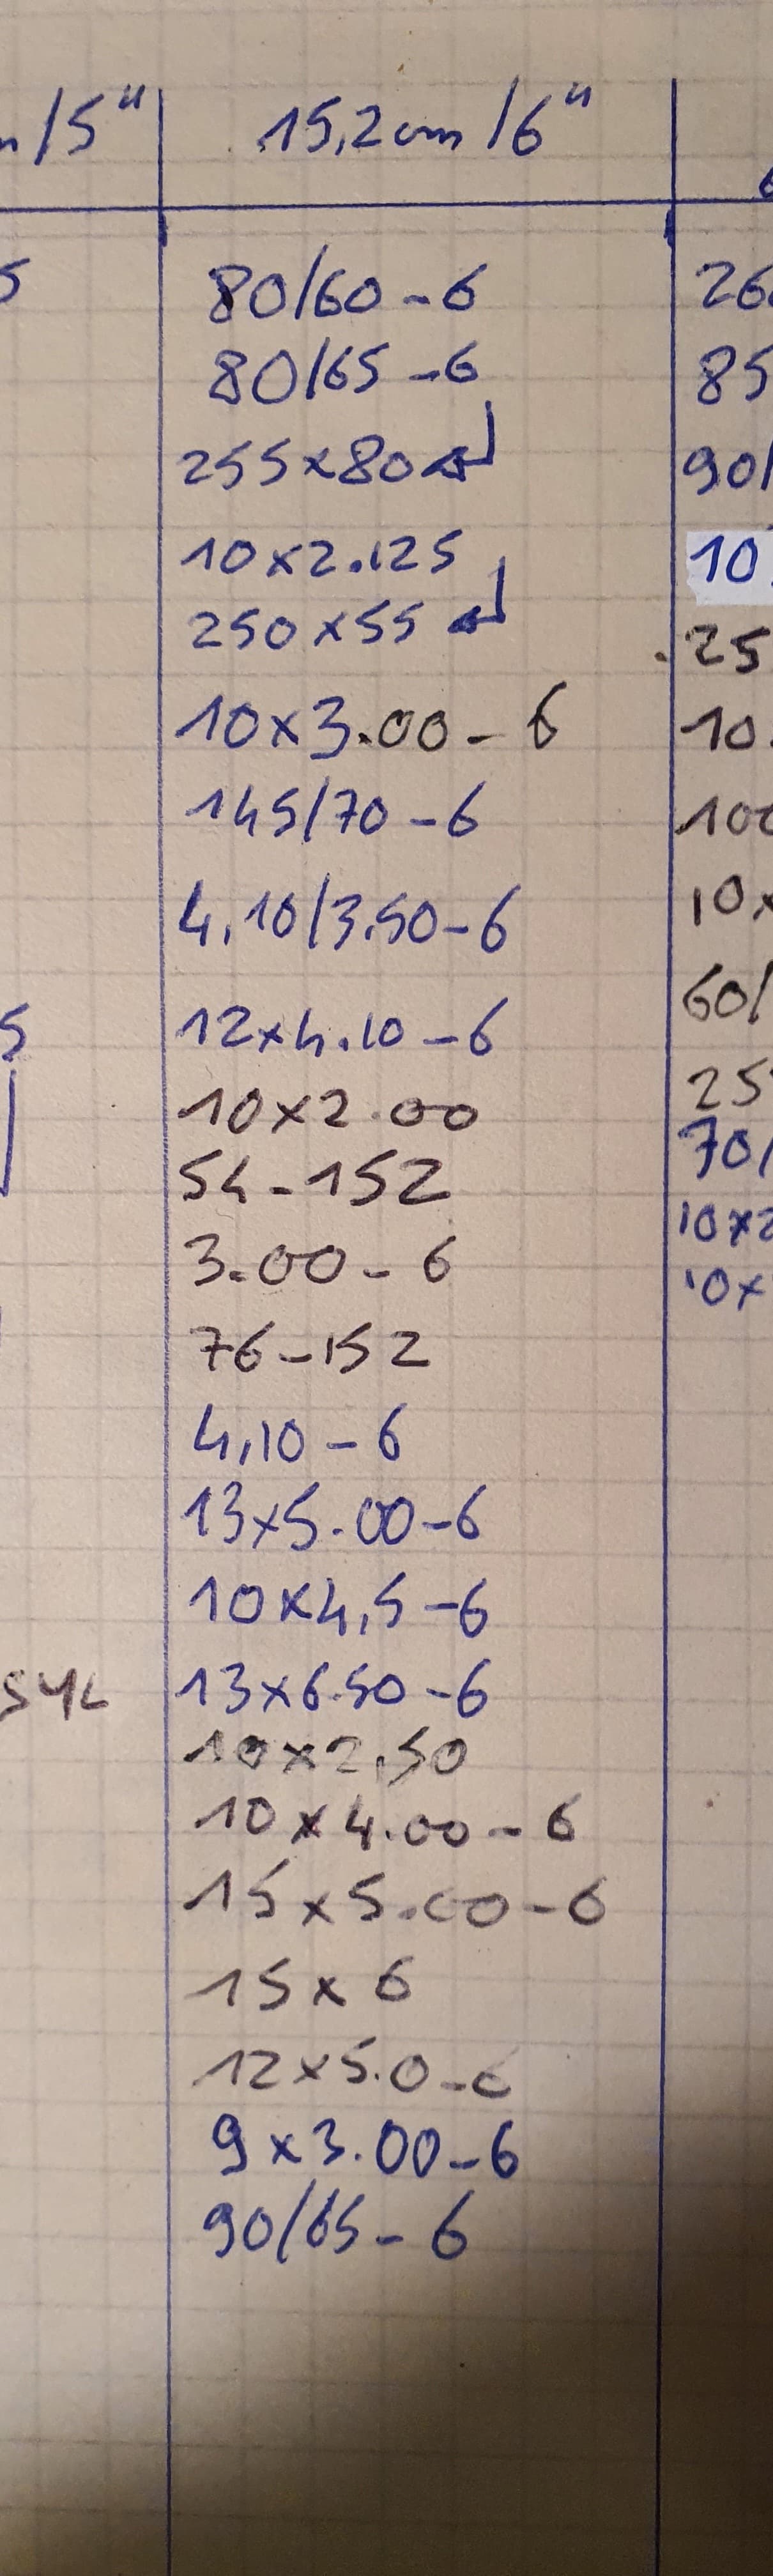 m/5" 15,2cm/6"
80/60-6
80/65-6
255x80
10x2.125
250x55
10x3.00-6
145/70-6
4,10/3,50-6
12x4.10-6
10x2.00
54-152
3.00-6
76-152
4,10-6
13x5.00-6
10x4,5-6
13x6.50-6
10x2,50
10x4.00-6
15x5.00-6
15x6
12x5.0-6
9x3.00-6
90/65-6
5
5
26
85
90/
10
25
10.
100
10x
60/
25
70/
10x2
10x